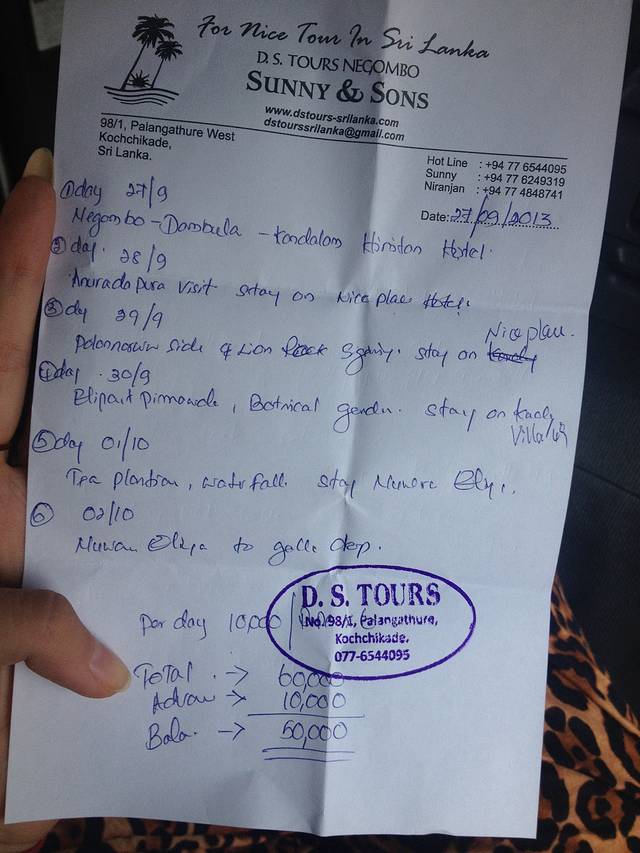 For Nice Tour In Sri Lanka
D. S. TOURS NEGOMBO
SUNNY & SONS
www.dstours-srilanka.com
dstourssrilanka@gmail.com
98/1, Palangathure West
Kochchikade,
Sri Lanka.
Hot Line : +94 77 6544095
Sunny : +94 77 6249319
Niranjan : +94 77 4848741
Date: 27/09/2013
① day 27/9
Negombo - Dambula - Kandalam Hotel.
② day. 28/9
Anuradapura visit stay on Nice place Hotel.
③ day 29/9
Nice place.
Polonnaruw side & Lion Rock stay on
④ day. 30/9
Botnical stay on
⑤ day 01/10
Tea plantion, waterfall. stay Nuwara Eliy.
⑥ 02/10
Nuwara Eliya to galle
per day 10,000
D. S. TOURS
No. 98/1, Palangathure,
Kochchikade.
077-6544095
Total -> 60,000
Advan -> 10,000
Bala. -> 50,000